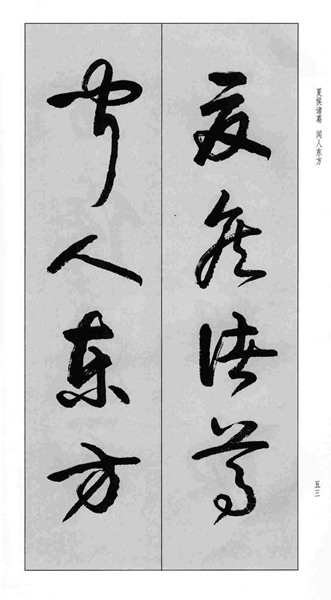 夏侯诸葛
闻人东方
夏侯诸葛 闻人东方
五三